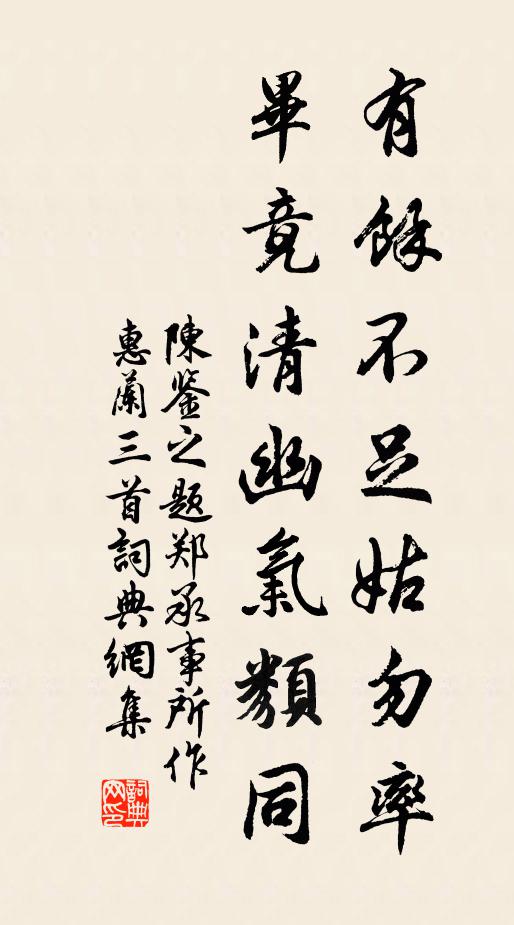 有餘不足姑勿率
畢竟清幽氣類同
陳鉴之题郑承事所作
惠蘭三首詞典網集
詞典网印